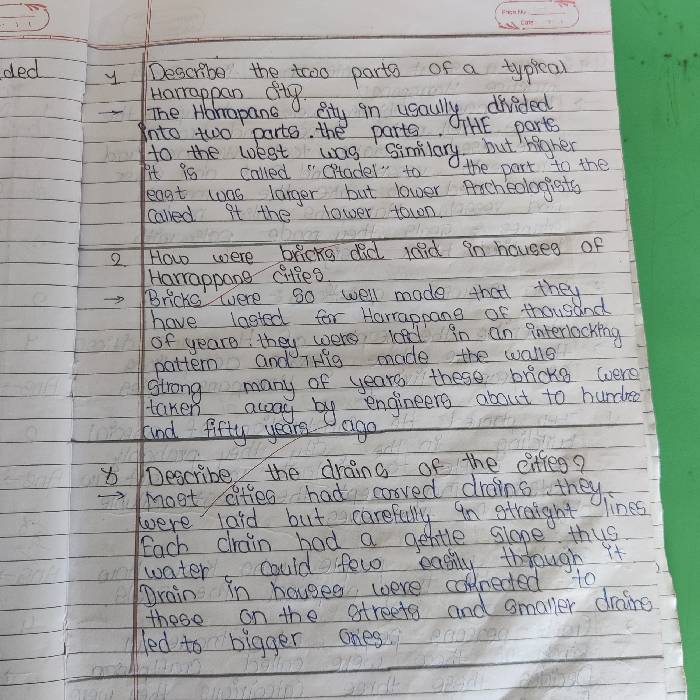 Page No.
Date
ded
1 Describe the two parts of a typical
Harrappan City?
→ The Harrapans city in usaully divided
into two parts. the parts. THE parts
to the west was similary but higher
it is called "Citadel" to the part to the
east was larger but lower Archeologists
called it the lower town.
2 How were bricks did laid in houses of
Harrappans cities
→ Bricks were so well made that they
have lasted for Harrappans of thousand
of years. they were laid in an interlocking
pattern and THis made the walls
strong many of years these bricks were
taken away by engineers about to hundred
and fifty years ago
Describe the drains of the cities?
→ Most cities had corved drains they
were laid but carefully in straight lines
Each drain had a gentle slope thus
water could flew easily through it
Drain in houses were connected to
these on the streets and smaller drains
led to bigger ones.